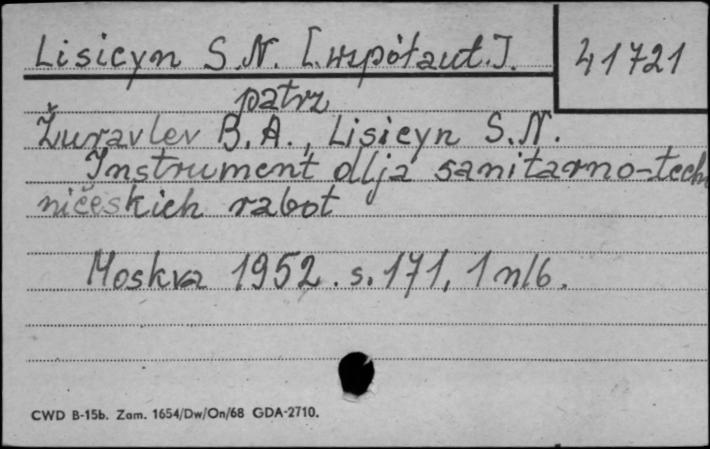 Lisicyn S.N. [współaut.]. 41721
patrz
Žuravlev B.A., Lisicyn S.N.
Instrument dlja sanitarno-tech
ničeskich rabot
Moskva 1952. s. 171, 1 nlb.
CWD B-15b. Zam. 1654/Dw/On/68 GDA-2710.